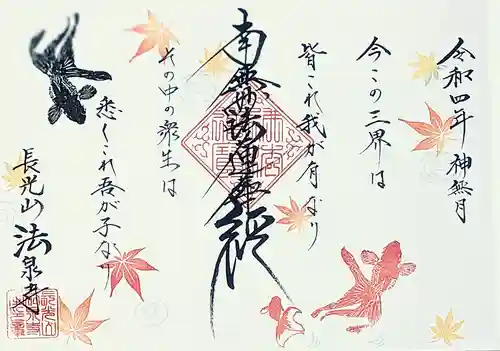 令和四年 神無月
今この三界は
皆これ我が有なり
南無妙法蓮華経
その中の衆生は
悉くこれ吾が子なり
長光山 法泉寺